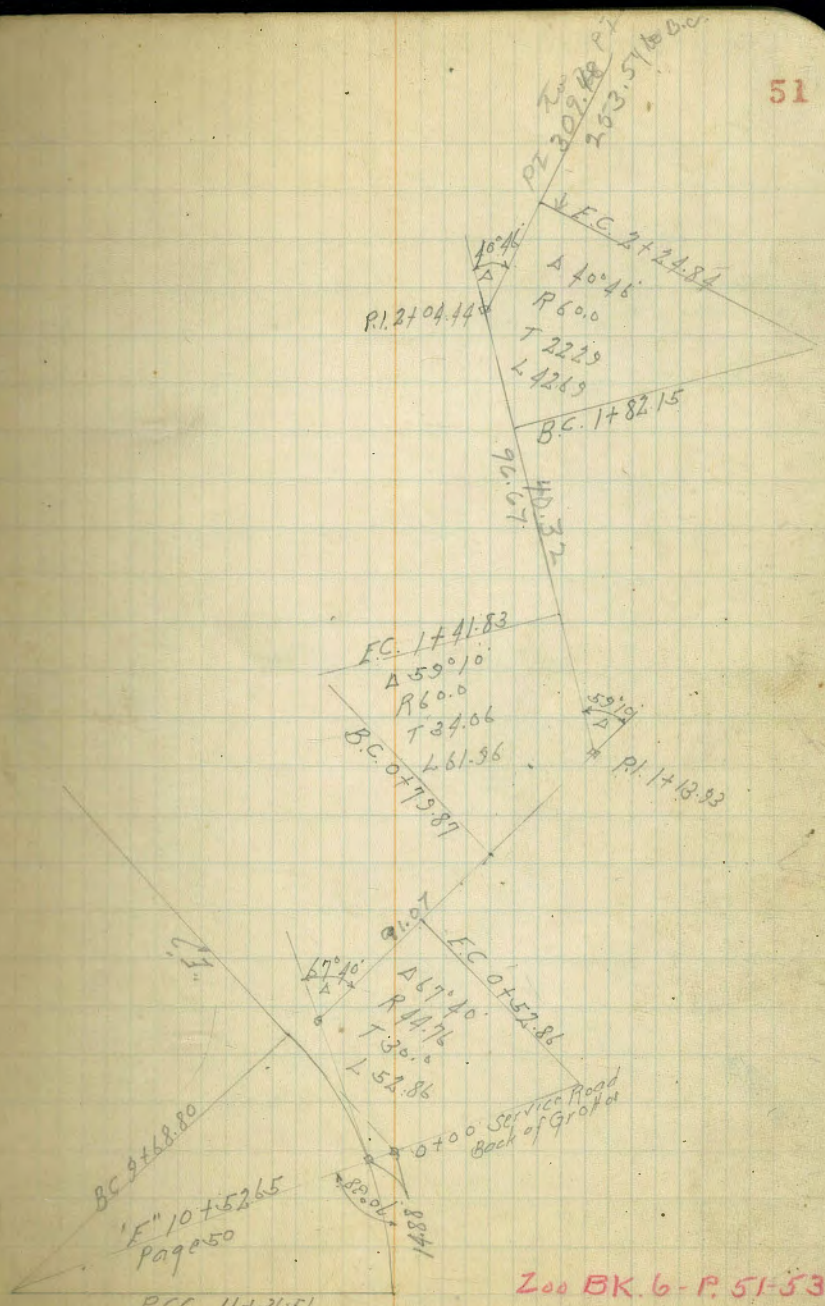 51
P.I. 309.48
253.54 to B.C.
E.C. 2+24.84
40°46'
Δ
Δ 40°46'
R 60.0
T 22.29
L 42.69
P.I. 2+04.44
B.C. 1+82.15
96.67
40.32
E.C. 1+41.83
Δ 59°10'
R 60.0
T 34.06
L 61.96
B.C. 0+79.87
59°10'
Δ
P.I. 1+13.93
91.07
E.C. 0+52.86
67°40'
Δ
Δ 67°40'
R 44.76
T 30.0
L 52.86
"E"
0+00 Service Road
Back of Grotto
BC 9+68.80
"E" 10+52.65
Page 50
14.88
Zoo BK. 6 - P. 51-53